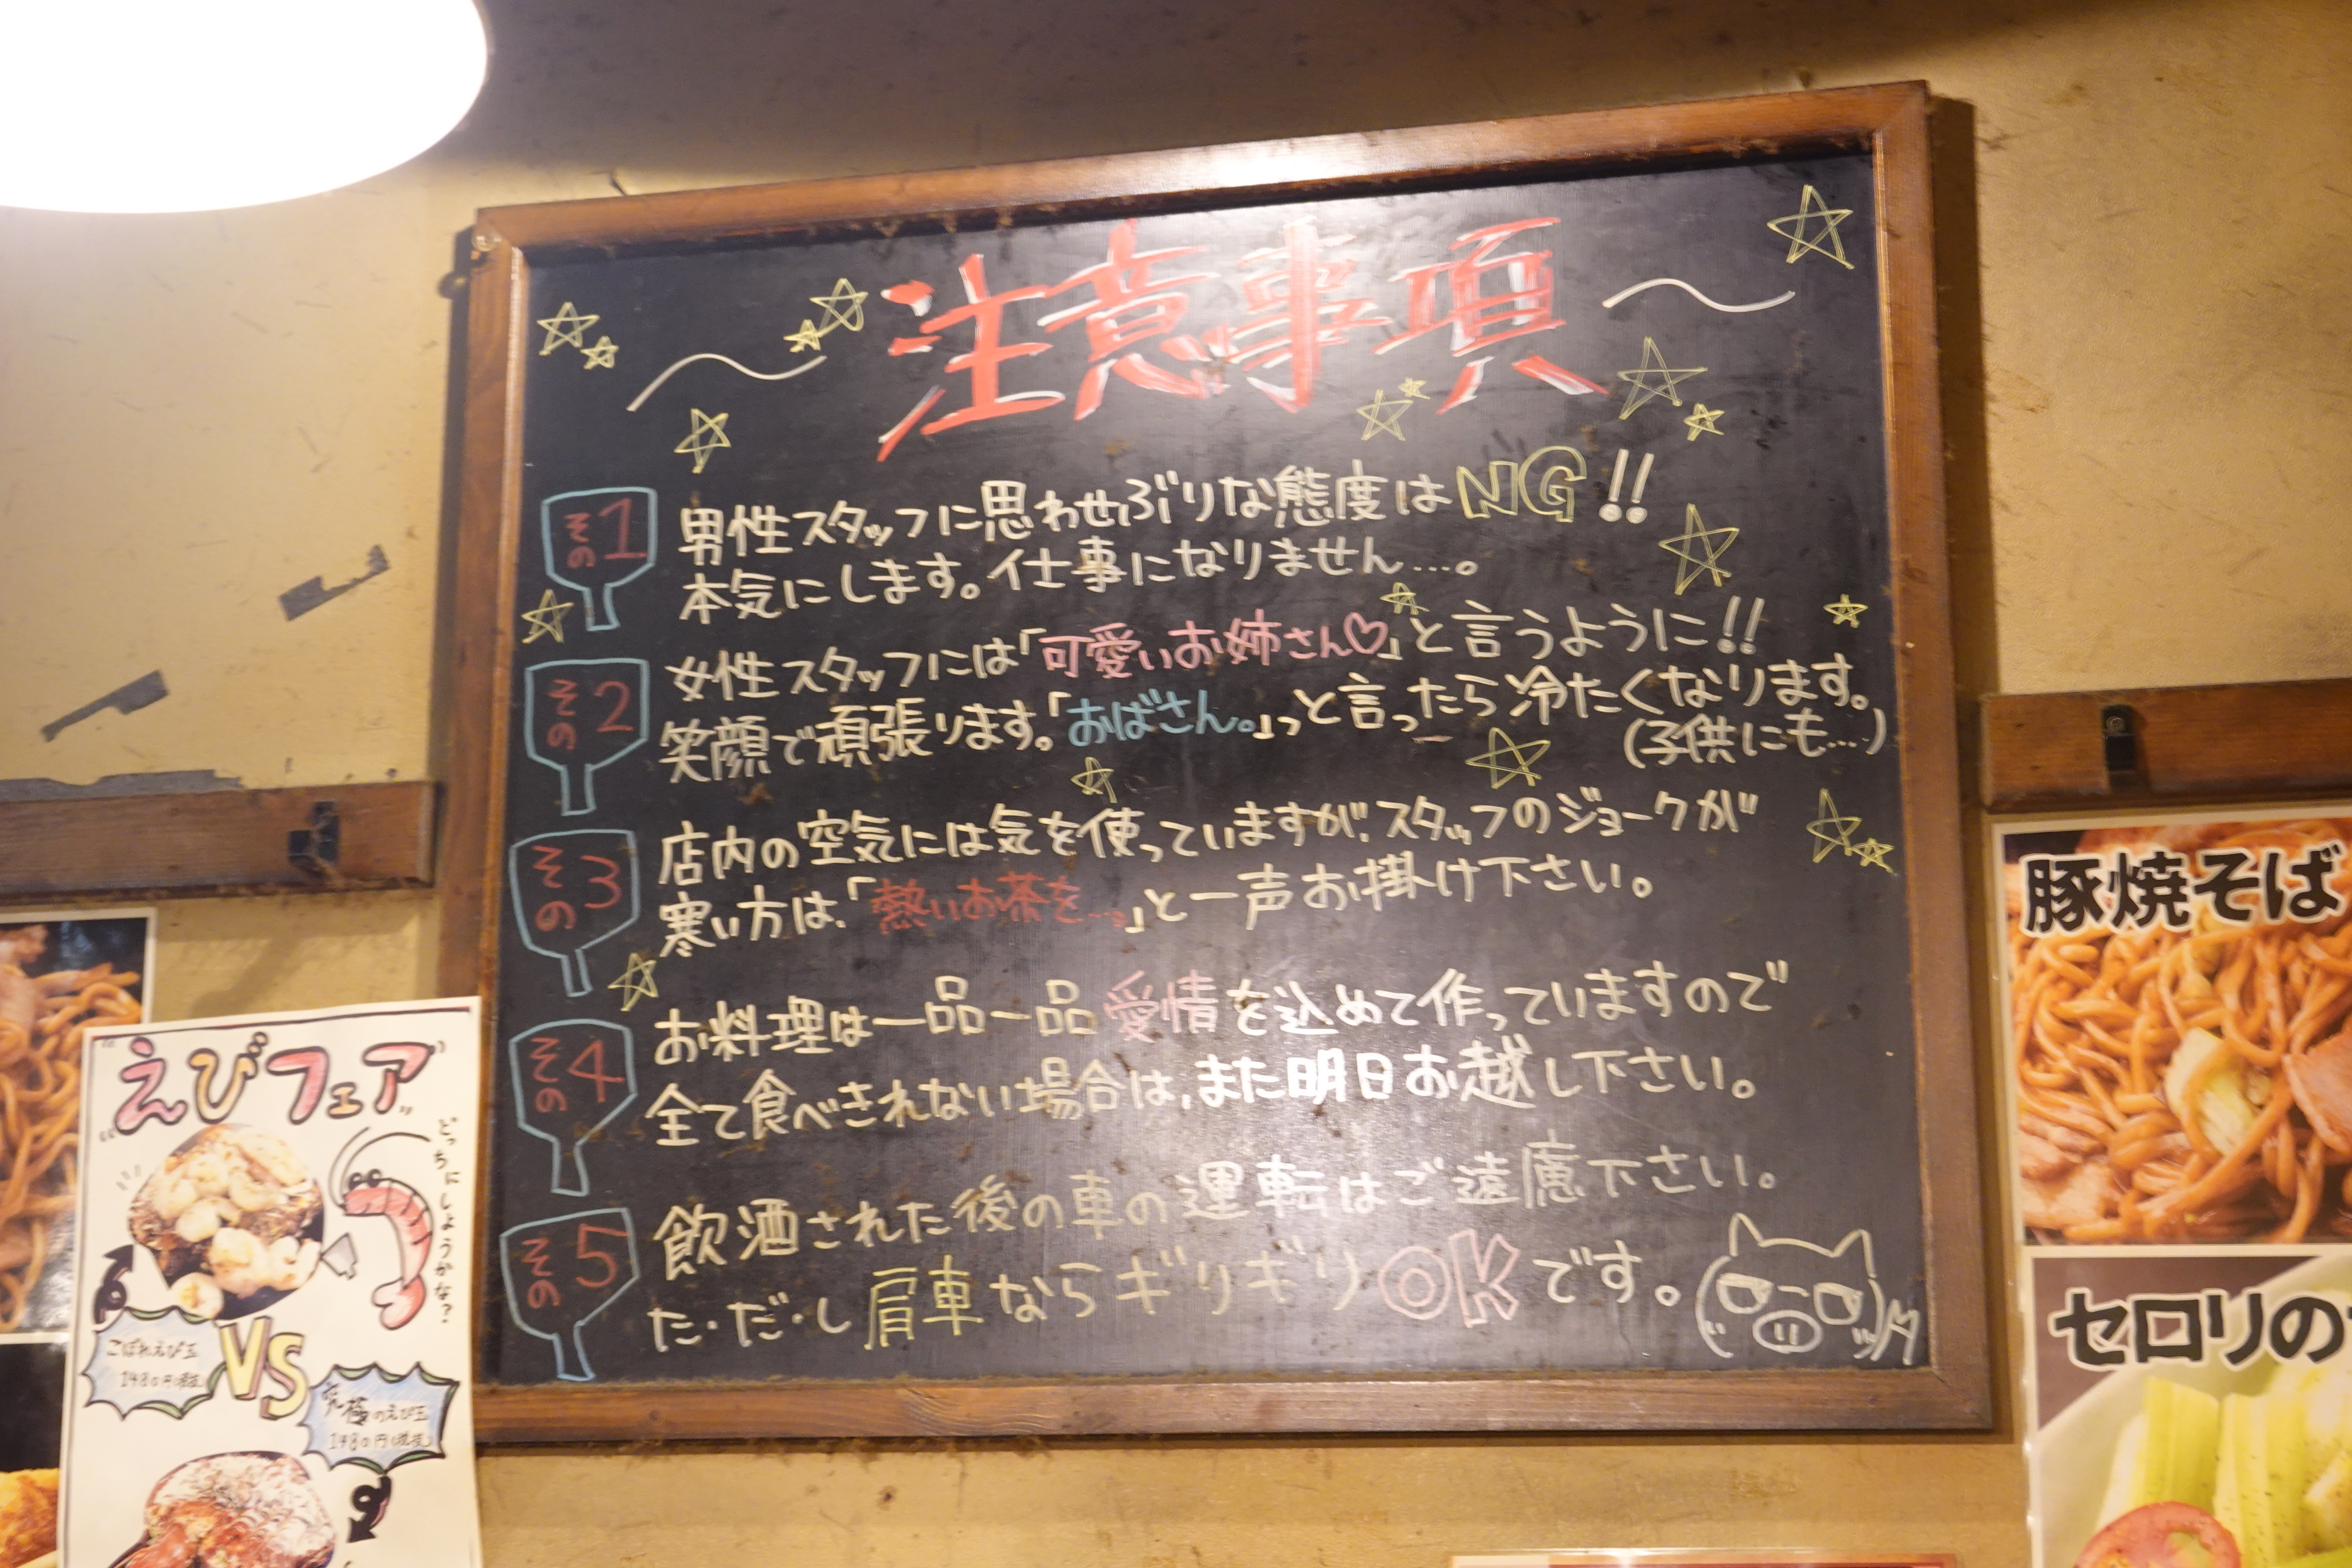 注意事項
その1
男性スタッフに思わせぶりな態度はNG!!
本気にします。仕事になりません…。
その2
女性スタッフには「可愛いお姉さん♡」と言うように!!
笑顔で頑張ります。「おばさん。」っと言ったら冷たくなります。
(子供にも…)
その3
店内の空気には気を使っていますが、スタッフのジョークが
寒い方は、「熱いお茶を…。」と一声お掛け下さい。
その4
お料理は一品一品愛情を込めて作っていますので
全て食べきれない場合は、また明日お越し下さい。
その5
飲酒された後の車の運転はご遠慮下さい。
た・だ・し肩車ならギリギリOKです。
"えびフェア"
どっちにしようかな?
こぼれえび玉
1480円(税抜)
VS
究極のえび玉
1480円(税抜)
豚焼そば
セロリの